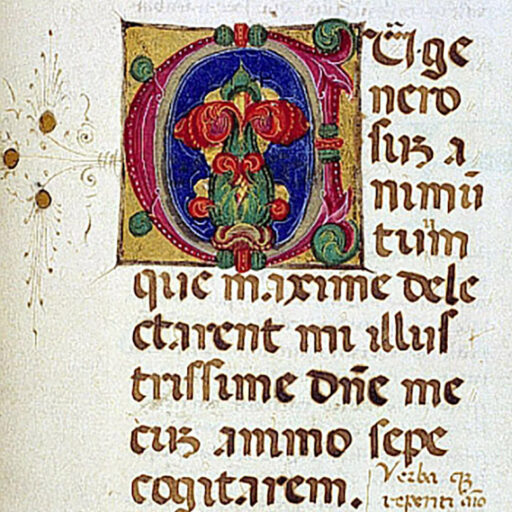 CŨ·ge
nero
suꝫ a
nimũ
tuũm
que maxime dele
ctarent mi illus
trissime Dñe me
cuꝫ animo sepe
cogitarem.
Verba